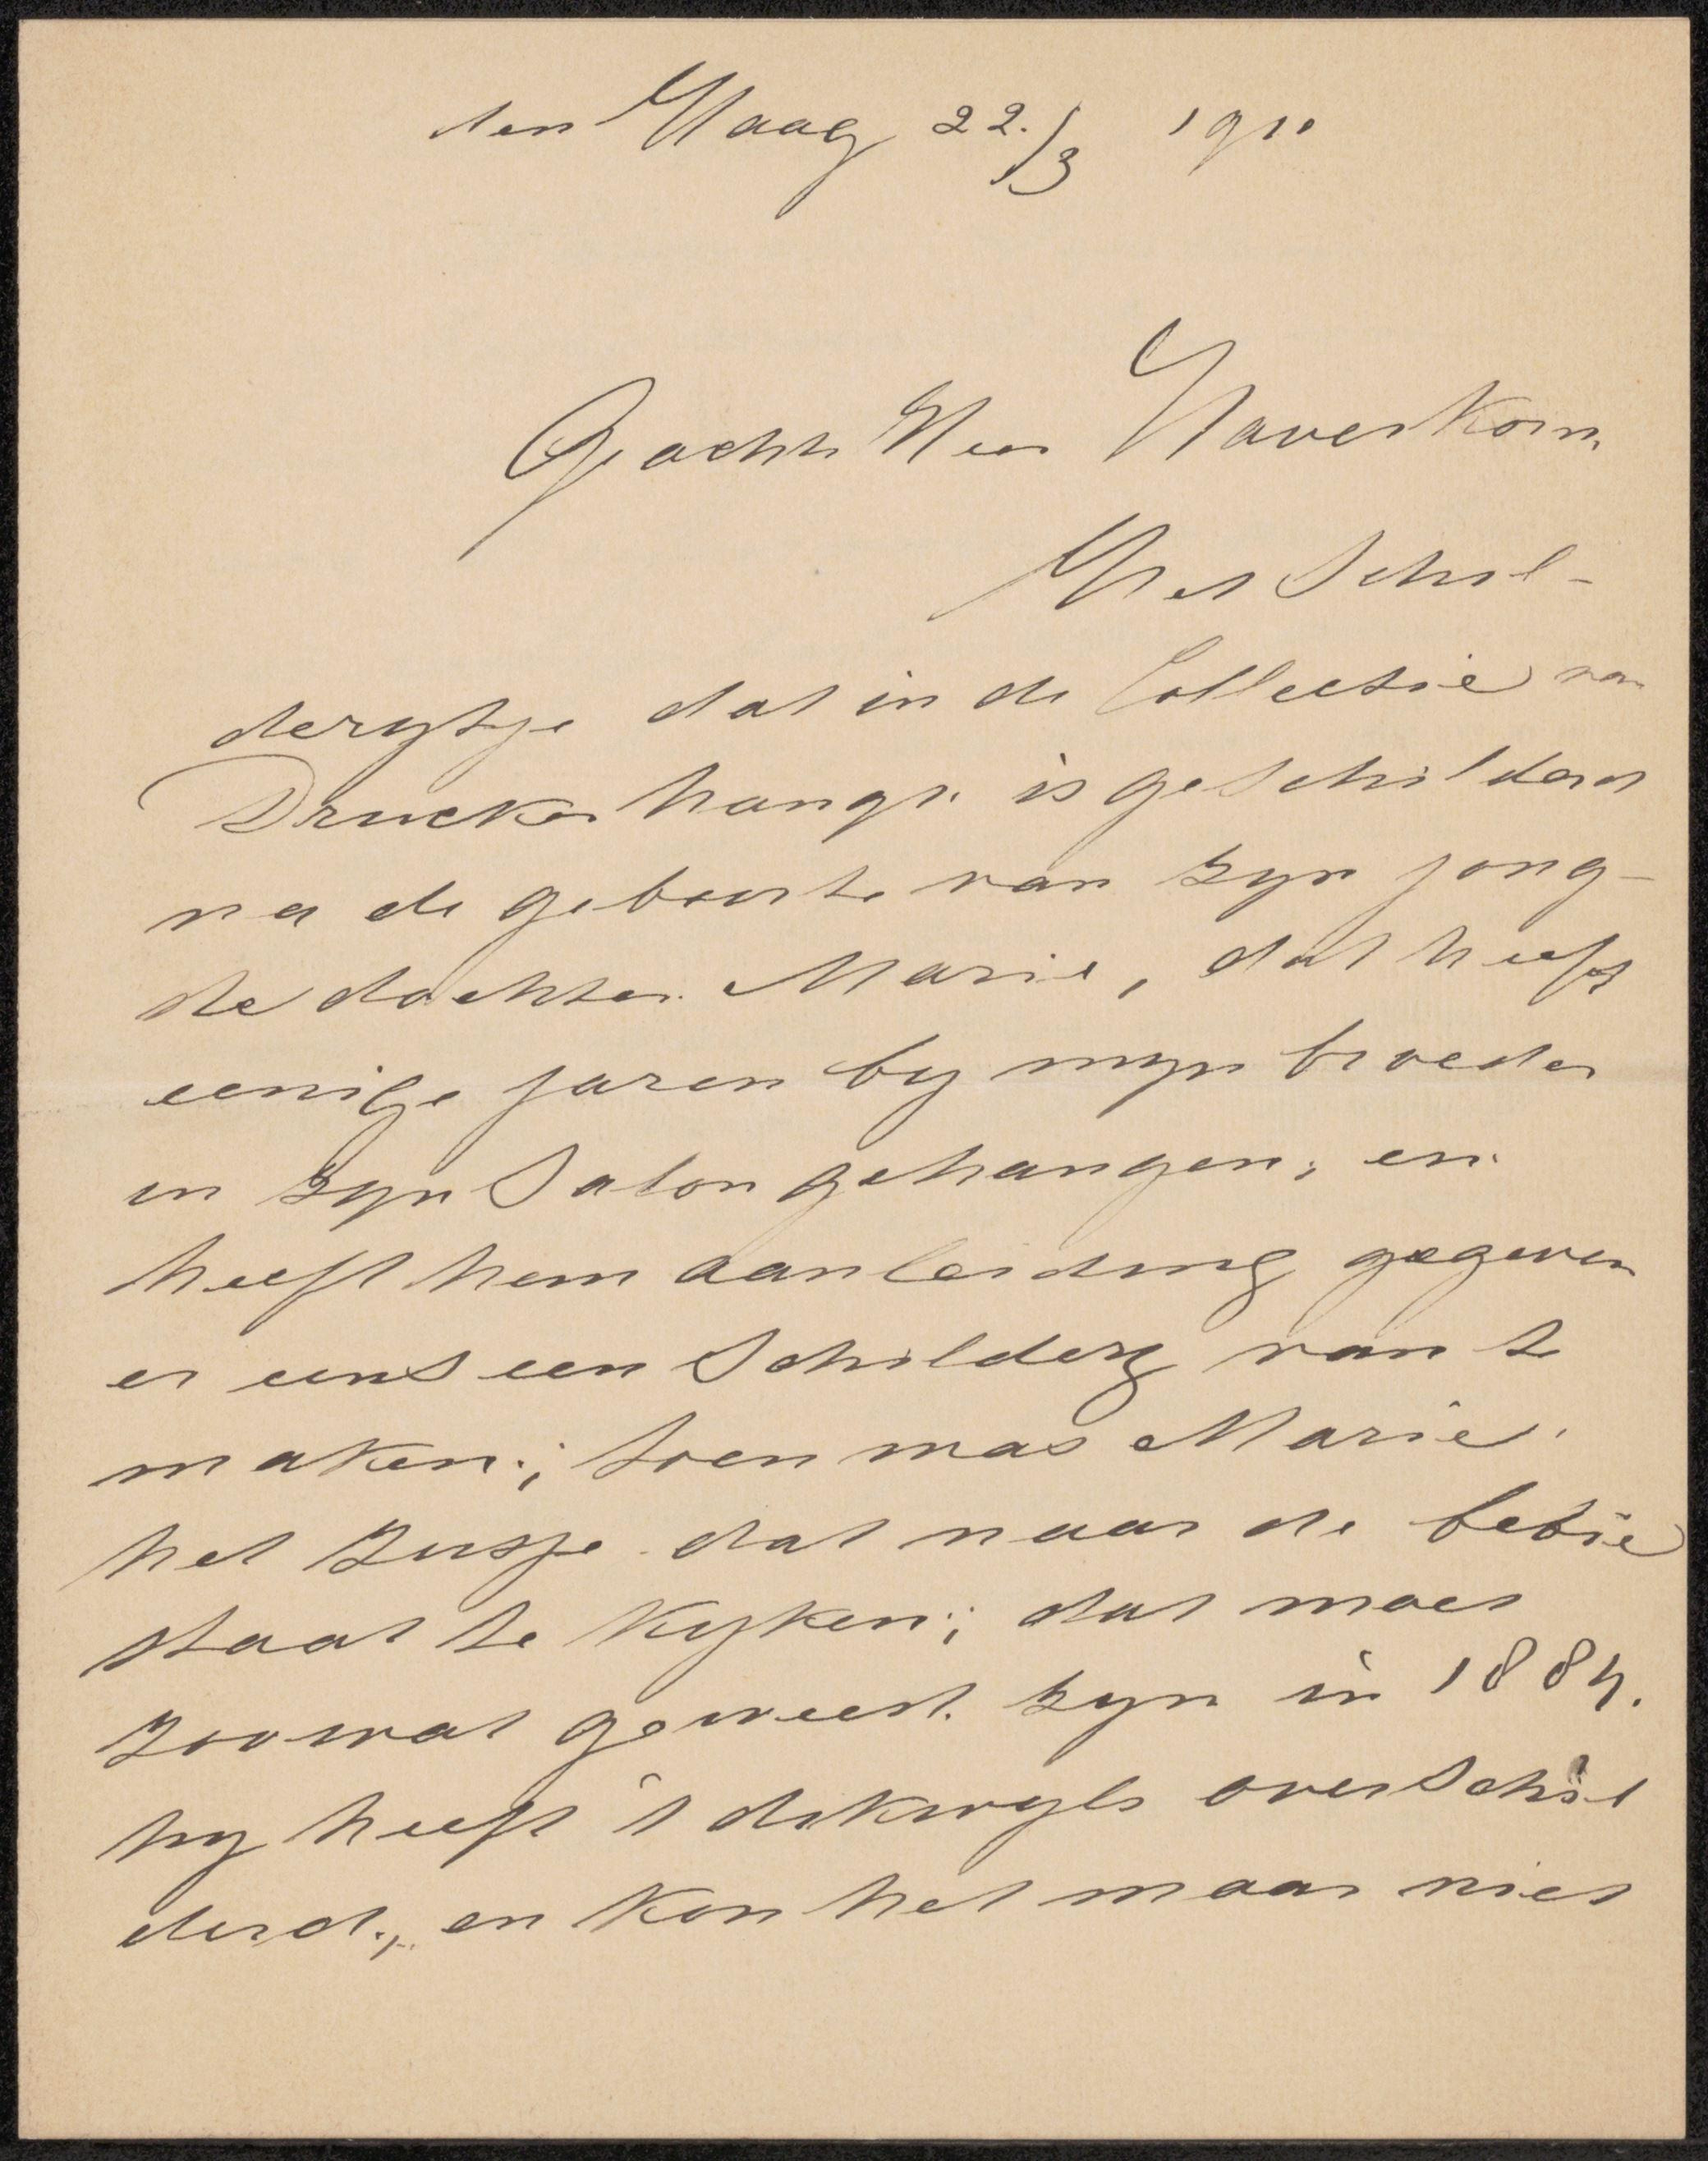 den Haag 22./3 1910
Geachte Heer Haverkorn.
Het Schil-
derytje dat in de Collectie van
Drucker hangt. is geschilderd
na de geboorte van zyn jong-
ste dochter. Marie, dat heeft
eenige jaren by myn broeder
in zyn Salon gehangen; en.
heeft hem aanleiding gegeven
er eens een Schildery van te
maken.; toen was Marie.
het zusje dat naar de bebie
staat te kyken; dat moet
zoowat geweest. zyn in 1884.
hy heeft 't dikwyls overschil
derd., en kon het maar niet